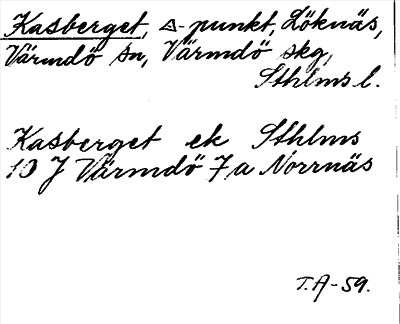 Kasberget, △-punkt, Löknäs,
Värmdö sn, Värmdö skg,
Sthlms l.
Kasberget ek Sthlms
10 J Värmdö 7 a Norrnäs
T.A-59.